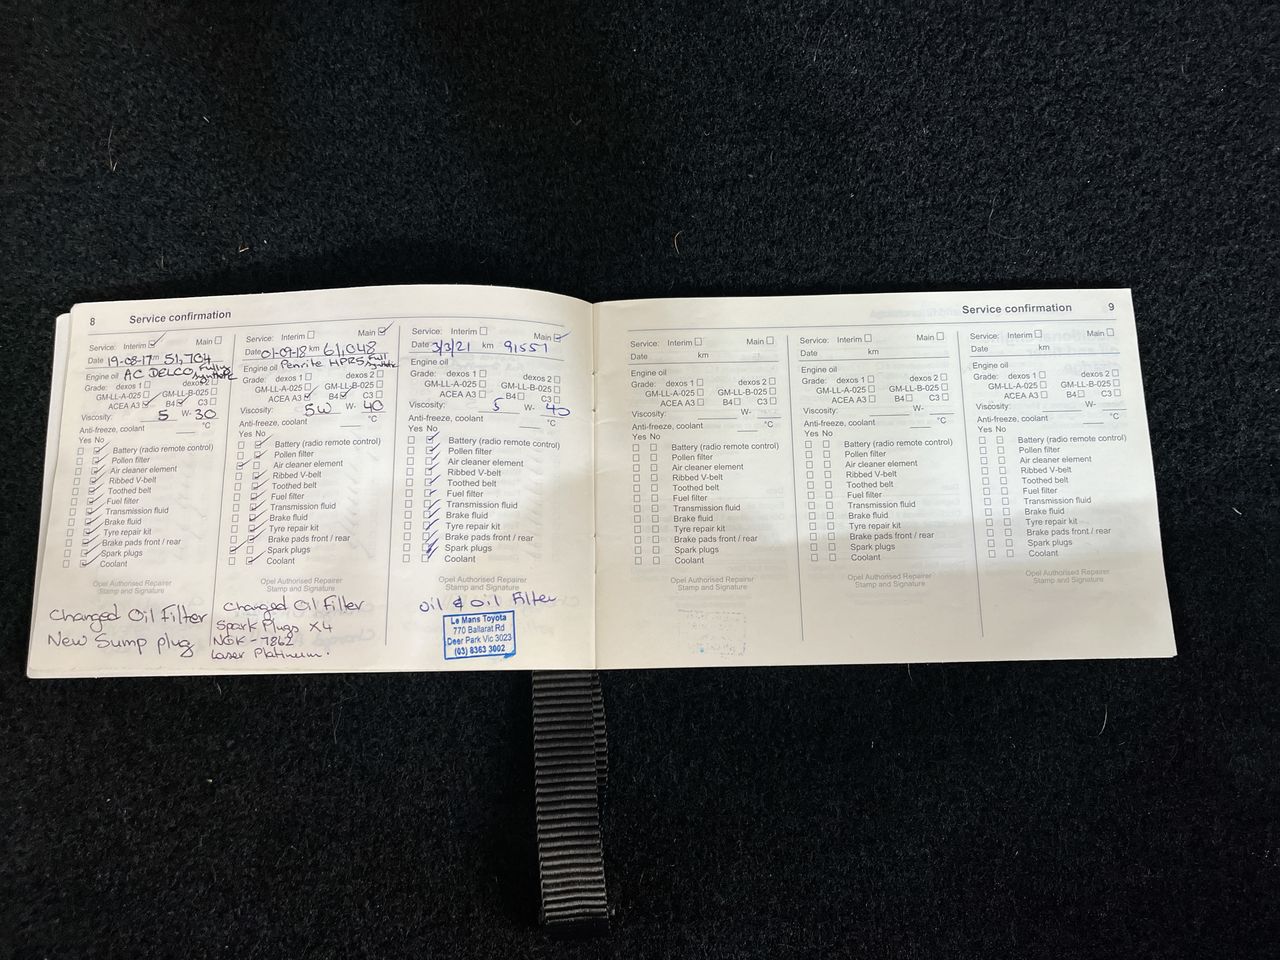 8 Service confirmation
Service: Interim Main
Date 19-08-17 km 51,704
Engine oil AC DELCO, Fully
Synthetic
Grade: dexos 1 dexos 2
GM-LL-A-025 GM-LL-B-025
ACEA A3 B4 C3
Viscosity: 5 W- 30
Anti-freeze, coolant °C
Yes No
Battery (radio remote control)
Pollen filter
Air cleaner element
Ribbed V-belt
Toothed belt
Fuel filter
Transmission fluid
Brake fluid
Tyre repair kit
Brake pads front / rear
Spark plugs
Coolant
Opel Authorised Repairer
Stamp and Signature
Changed Oil Filter
New Sump plug
Service: Interim Main
Date 01-09-18 km 61,048
Engine oil Penrite HPR5 Full
Synthetic
Grade: dexos 1 dexos 2
GM-LL-A-025 GM-LL-B-025
ACEA A3 B4 C3
Viscosity: 5W W- 40
Anti-freeze, coolant °C
Yes No
Battery (radio remote control)
Pollen filter
Air cleaner element
Ribbed V-belt
Toothed belt
Fuel filter
Transmission fluid
Brake fluid
Tyre repair kit
Brake pads front / rear
Spark plugs
Coolant
Opel Authorised Repairer
Stamp and Signature
Changed Oil Filter
Spark Plugs X4
NGK - 7862
Laser Platinum.
Service: Interim Main
Date 3/3/21 km 91557
Engine oil
Grade: dexos 1 dexos 2
GM-LL-A-025 GM-LL-B-025
ACEA A3 B4 C3
Viscosity: 5 W- 40
Anti-freeze, coolant °C
Yes No
Battery (radio remote control)
Pollen filter
Air cleaner element
Ribbed V-belt
Toothed belt
Fuel filter
Transmission fluid
Brake fluid
Tyre repair kit
Brake pads front / rear
Spark plugs
Coolant
Opel Authorised Repairer
Stamp and Signature
oil & oil Filter
Le Mans Toyota
770 Ballarat Rd
Deer Park Vic 3023
(03) 8363 3002
Service confirmation 9
Service: Interim Main
Date km
Engine oil
Grade: dexos 1 dexos 2
GM-LL-A-025 GM-LL-B-025
ACEA A3 B4 C3
Viscosity: W-
Anti-freeze, coolant °C
Yes No
Battery (radio remote control)
Pollen filter
Air cleaner element
Ribbed V-belt
Toothed belt
Fuel filter
Transmission fluid
Brake fluid
Tyre repair kit
Brake pads front / rear
Spark plugs
Coolant
Opel Authorised Repairer
Stamp and Signature
Service: Interim Main
Date km
Engine oil
Grade: dexos 1 dexos 2
GM-LL-A-025 GM-LL-B-025
ACEA A3 B4 C3
Viscosity: W-
Anti-freeze, coolant °C
Yes No
Battery (radio remote control)
Pollen filter
Air cleaner element
Ribbed V-belt
Toothed belt
Fuel filter
Transmission fluid
Brake fluid
Tyre repair kit
Brake pads front / rear
Spark plugs
Coolant
Opel Authorised Repairer
Stamp and Signature
Service: Interim Main
Date km
Engine oil
Grade: dexos 1 dexos 2
GM-LL-A-025 GM-LL-B-025
ACEA A3 B4 C3
Viscosity: W-
Anti-freeze, coolant °C
Yes No
Battery (radio remote control)
Pollen filter
Air cleaner element
Ribbed V-belt
Toothed belt
Fuel filter
Transmission fluid
Brake fluid
Tyre repair kit
Brake pads front / rear
Spark plugs
Coolant
Opel Authorised Repairer
Stamp and Signature